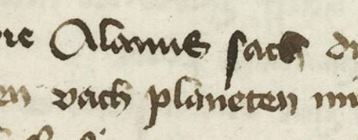 wie Alanus sach di
en vach planeten mi